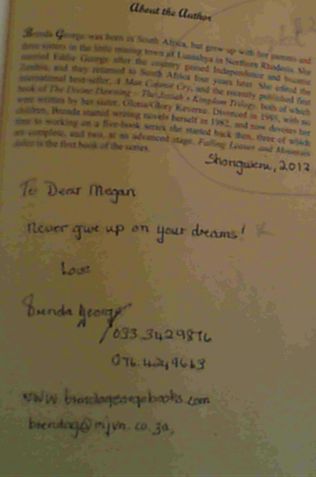 About the Author
Brenda George was born in South Africa, but grew up with her parents and
three sisters in the little mining town of Luanshya in Northern Rhodesia. She
married Eddie George after the country gained Independence and became
Zambia, and they returned to South Africa four years later. She edited the
international best-seller, A Man Cannot Cry, and the recently published first
book of The Divine Dawning - The Kingdom Trilogy, both of which
were written by her sister, Gloria Keverne. Divorced in 1985, with
children, Brenda started writing novels herself in 1982, and now devotes her
time to working on a five-book series she started back then, three of which
are complete, and two, at an advanced stage. Falling Leaves and Mountain
Ashes is the first book of the series.
Shongweni, 2012
To Dear Megan
Never give up on your dreams!
Love
Brenda George
033.3429816
www.brendageorgebooks.com
brendag@mjvn.co.za